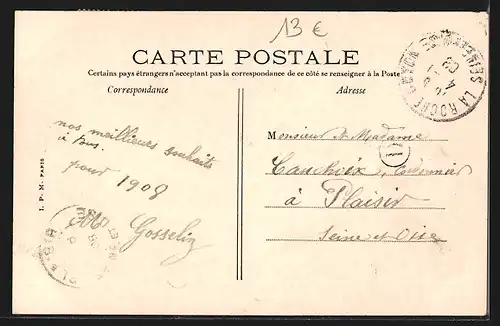 13 €
CARTE POSTALE
Certains pays étrangers n'acceptant pas la correspondance de ce côté se renseigner à la Poste
Correspondance
Adresse
nos meilleures souhaits
à tous.
pour 1908
Gosselin
Monsieur et Madame
Cauchoix, Cordonnier
à Plaisir
Seine et Oise
I. P. M. PARIS
LA ROCHE GUYON
SEINE ET OISE